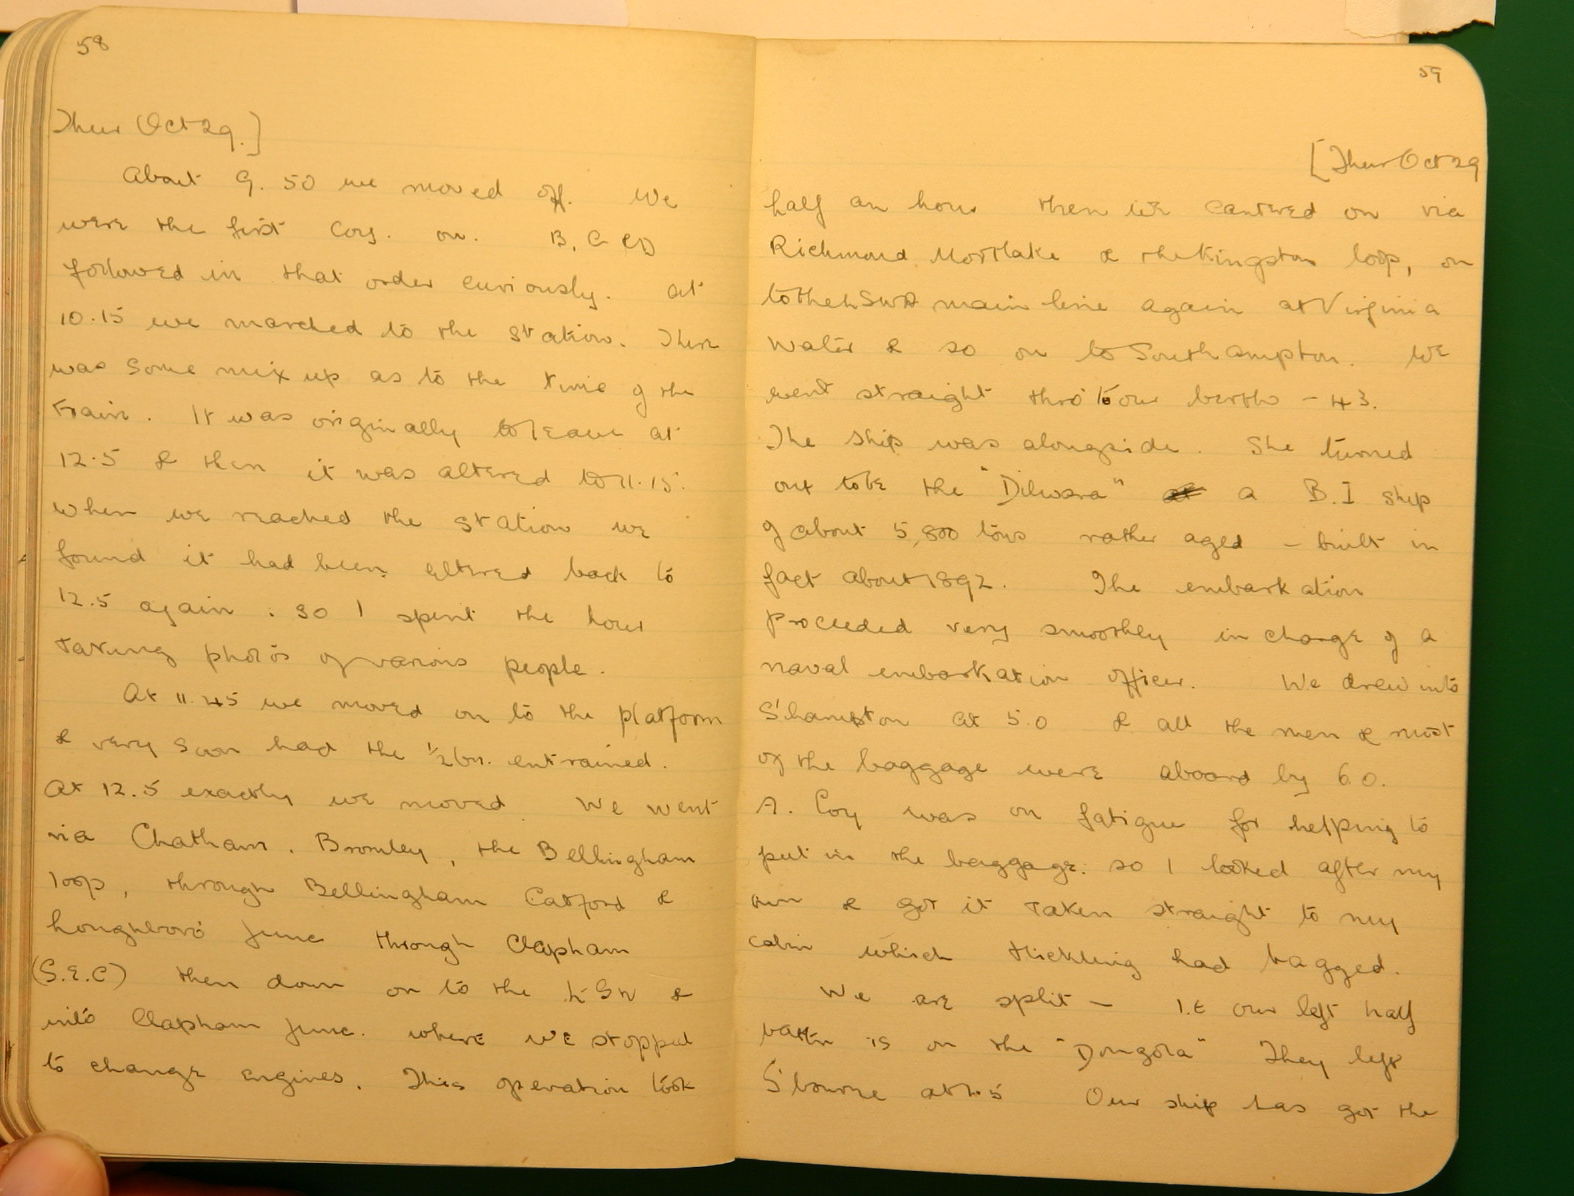 58
Thur Oct 29.]
About 9.50 we moved off. We
were the first Coy. on. B, C & D
followed in that order curiously. At
10.15 we marched to the station. There
was some mix up as to the time of the
train. It was originally to leave at
12.5 & then it was altered to 11.15.
When we reached the station we
found it had been altered back to
12.5 again. So I spent the hour
taking photos of various people.
At 11.45 we moved on to the platform
& very soon had the ½ bn. entrained.
At 12.5 exactly we moved. We went
via Chatham, Bromley, the Bellingham
loop, through Bellingham Catford &
Loughboro' Junc through Clapham
(S.E.C) then down on to the LSW &
into Clapham Junc. where we stopped
to change engines. This operation took
59
[Thur Oct 29
half an hour then we cantered on via
Richmond Mortlake & the Kingston loop, on
to the LSWR main line again at Virginia
Water & so on to Southampton. We
went straight thro' to our berths – 43.
The ship was alongside. She turned
out to be the "Dilwara" a B.I ship
of about 5,800 tons rather aged – built in
fact about 1892. The embarkation
proceeded very smoothly in charge of a
naval embarkation officer. We drew into
S'hampton at 5.0 & all the men & most
of the baggage were aboard by 6.0.
A. Coy was on fatigue for helping to
put in the baggage. so I looked after my
own & got it taken straight to my
cabin which Hickling had bagged.
We are split — I.E our left half
battn is on the "Dongola" They left
S'bourne at 4.5 Our ship has got the